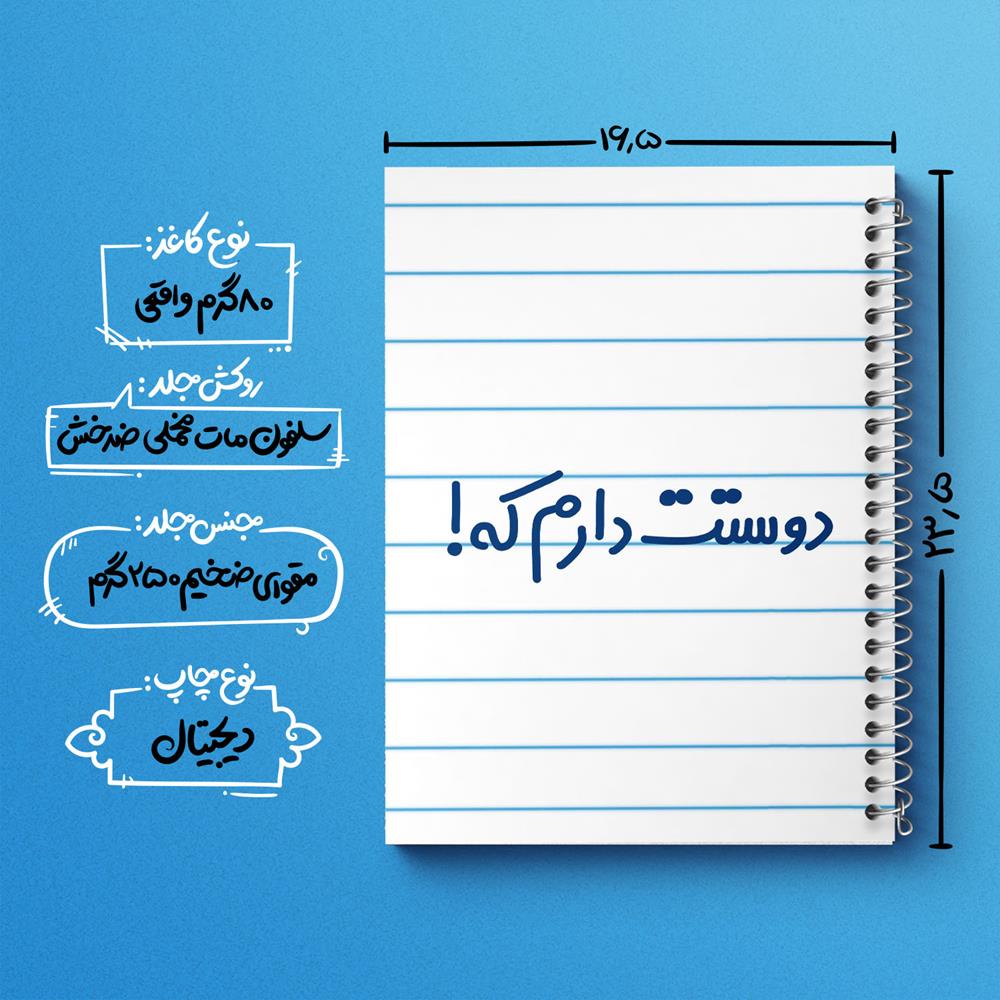 ۱۶٫۵
۲۳٫۵
دوستت دارم که!
نوع کاغذ:
۸۰ گرم واقعی
روکش جلد:
سلفون مات مخملی ضدخش
جنس جلد:
مقوای ضخیم ۲۵۰ گرم
نوع چاپ:
دیجیتال